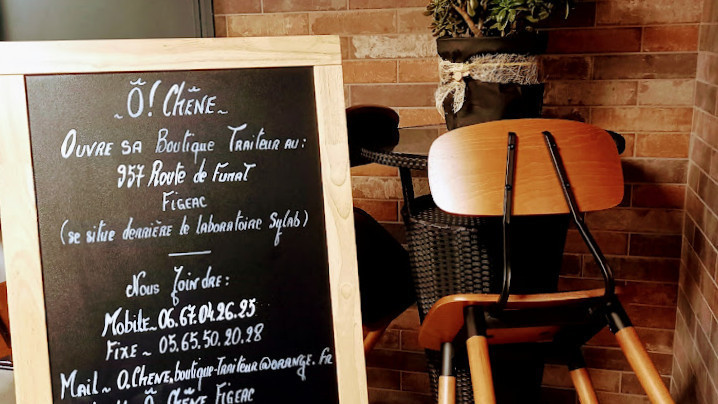 ~Ô! Chêne~
Ouvre sa Boutique Traiteur au:
957 Route de Fumat
Figeac
(se situe derrière le laboratoire Sylab)
Nous Joindre:
Mobile~06.67.04.26.95
Fixe~05.65.50.20.28
Mail~O.Chene.boutique-Traiteur@orange.fr
Ô Chêne Figeac